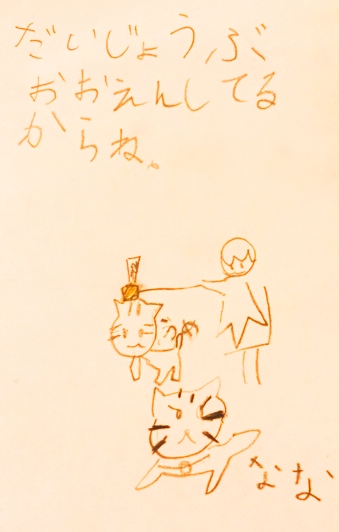 だいじょうぶ
おおえんしてる
からね。
うめ
なな